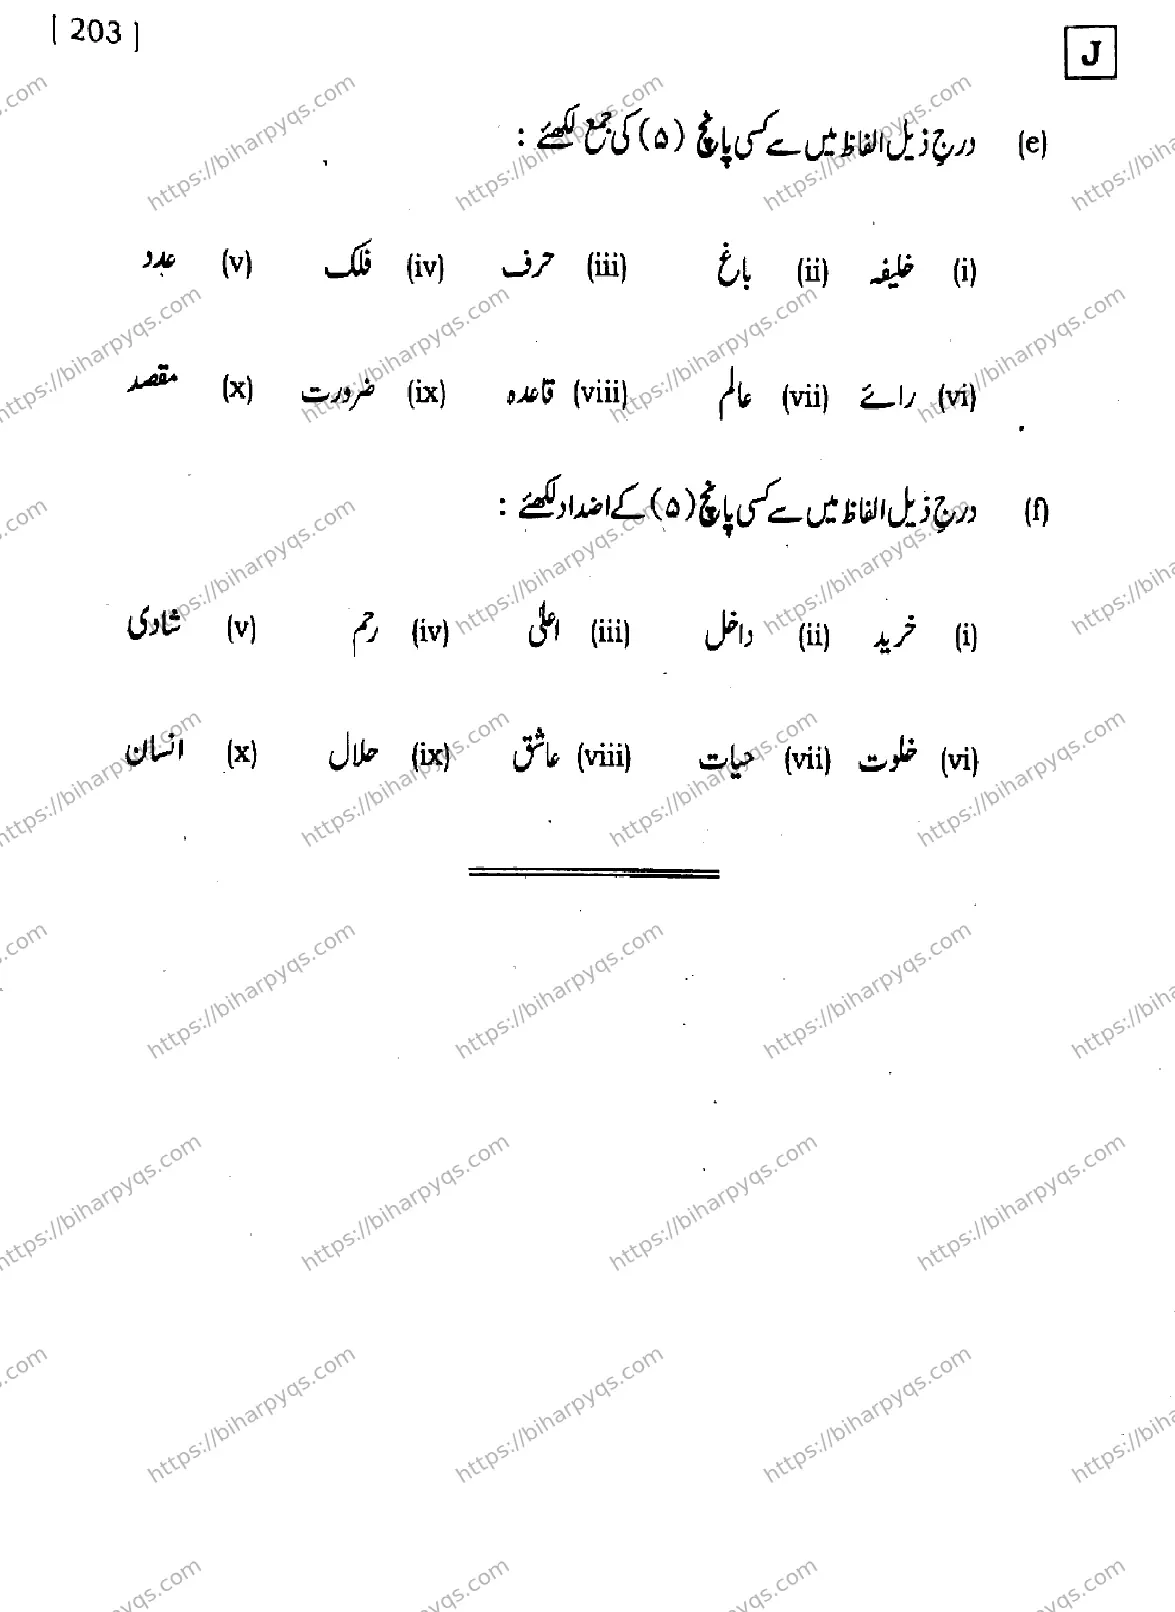 [ 203 ]
J
(e) درج ذیل الفاظ میں سے کسی پانچ (۵) کی جمع لکھئے :
(i) خلیفہ (ii) باغ (iii) حرف (iv) فلک (v) عدد
(vi) رائے (vii) عالم (viii) قاعدہ (ix) ضرورت (x) مقصد
(f) درج ذیل الفاظ میں سے کسی پانچ (۵) کے اضداد لکھئے :
(i) خرید (ii) داخل (iii) اعلیٰ (iv) رحم (v) شادی
(vi) خلوت (vii) حیات (viii) عاشق (ix) حلال (x) انسان
https://biharpyqs.com